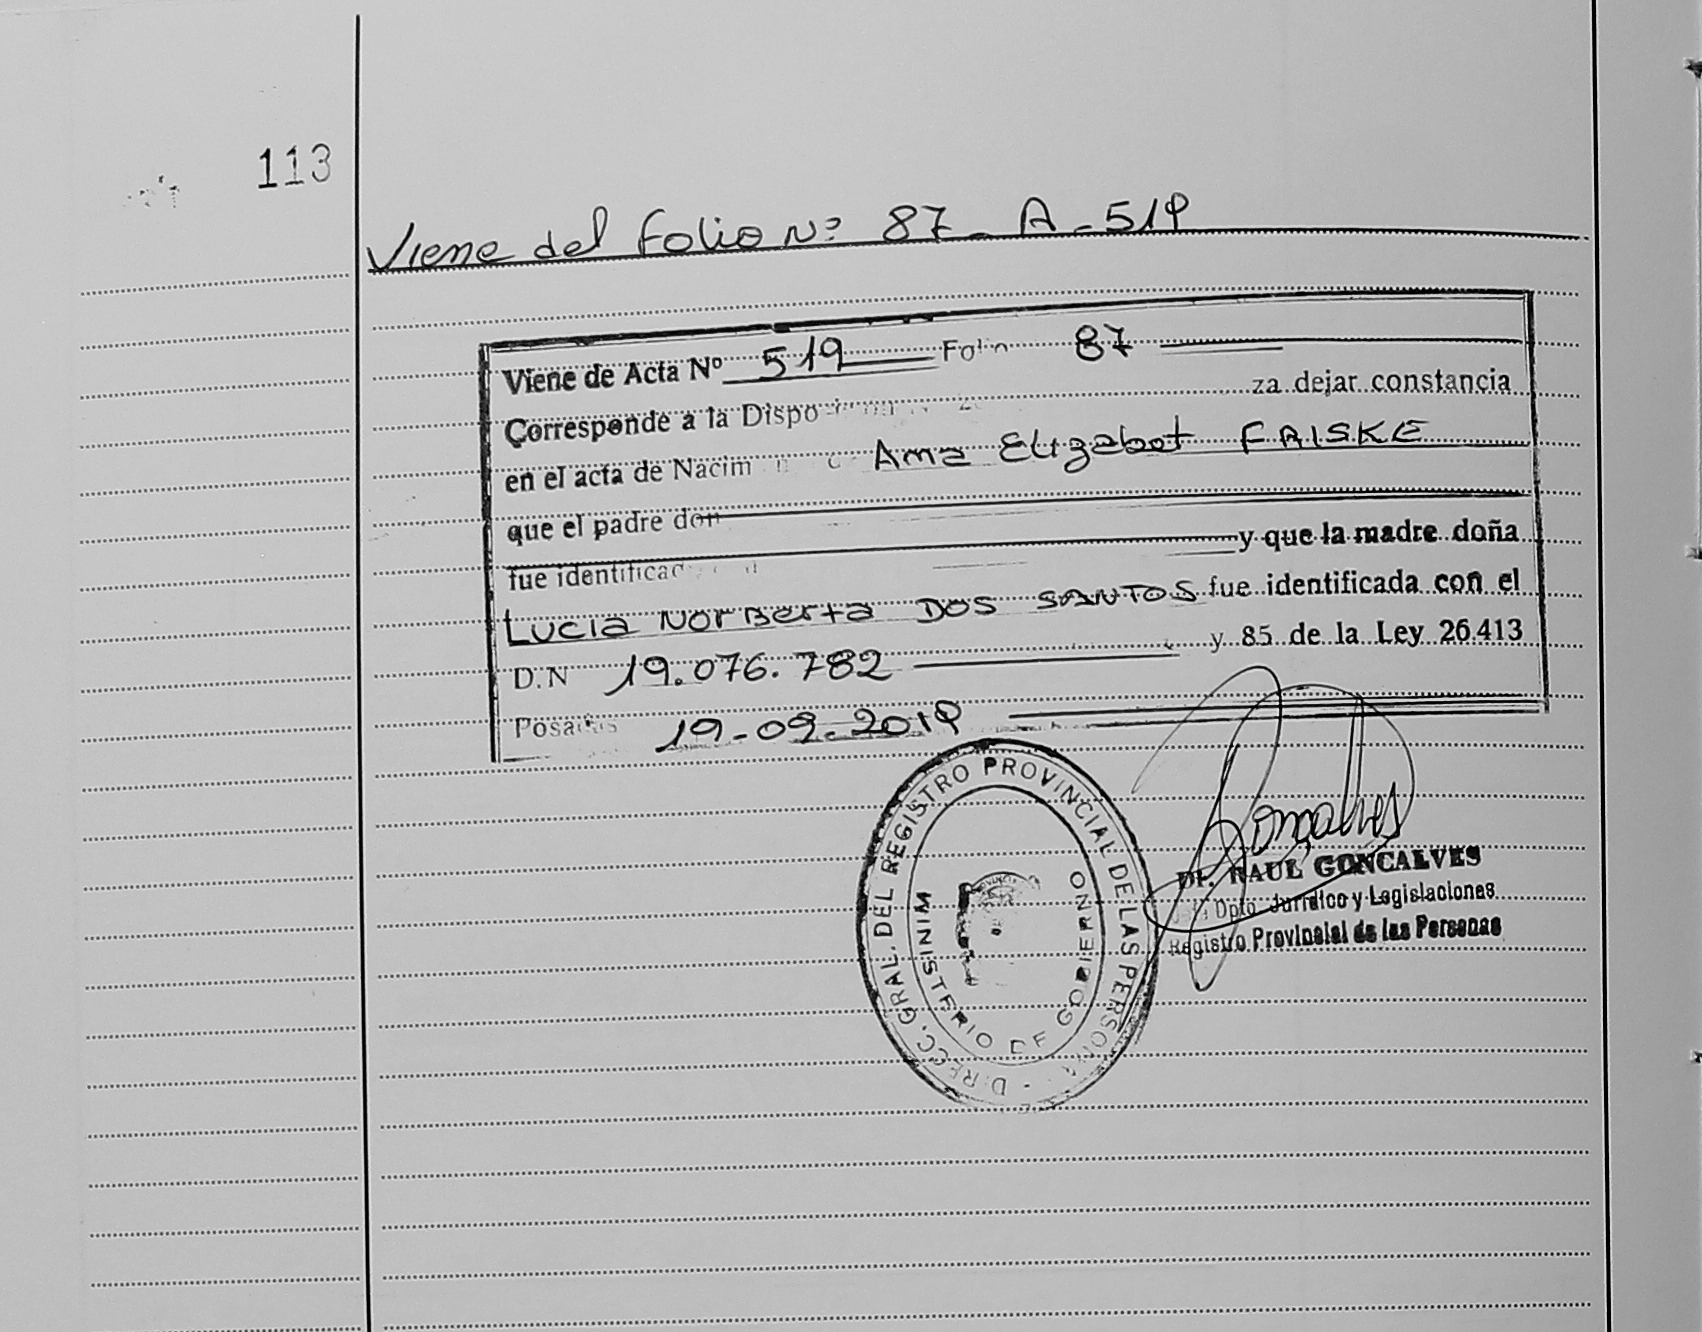 113
Viene del folio Nº 87 - A - 519
Viene de Acta Nº 519 Folio 87
Corresponde a la za dejar constancia
en el acta de Ana Elizabet FRISKE
que el padre don
fue y que la madre doña
Lucia Norberta DOS SANTOS fue identificada con el
D.N 19.076.782 y 85 de la Ley 26.413
Posadas 19-09-2019
Gonçalves
Dr. RAUL GONCALVES
Dpto. Jurídico y Legislaciones
Registro Provincial de las Personas
DIRECC. GRAL. DEL REGISTRO PROVINCIAL DE LAS PERSONAS
MINISTERIO DE GOBIERNO